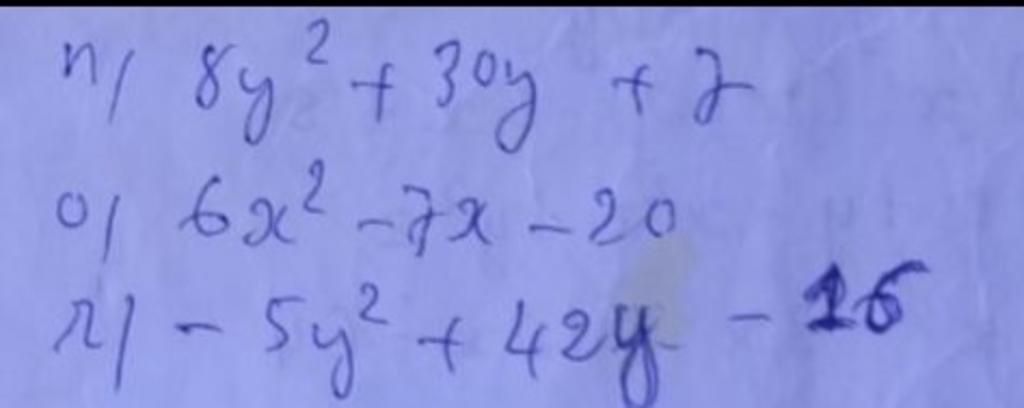 n/ 8y² + 30y + 7
o/ 6x² - 7x - 20
r/ - 5y² + 42y - 16